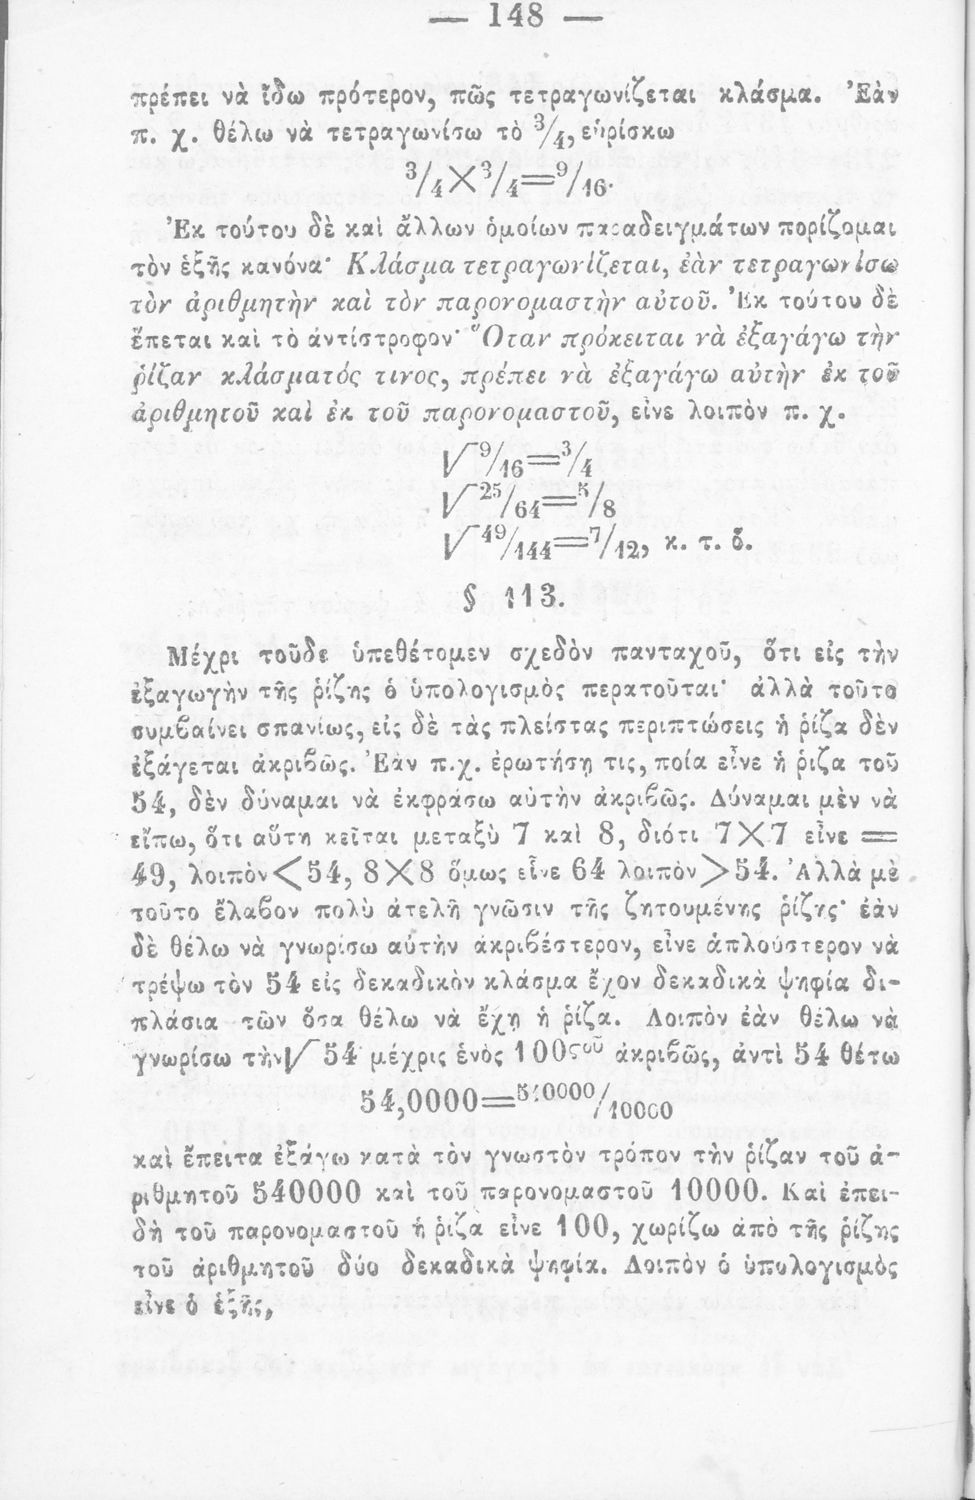 — 148 —
πρέπει νὰ ἴδω πρότερον, πῶς τετραγωνίζεται κλάσμα. Ἐὰν
π. χ. θέλω νὰ τετραγωνίσω τὸ ³/₄, εὑρίσκω
³/₄×³/₄=⁹/₁₆·
Ἐκ τούτου δὲ καὶ ἄλλων ὁμοίων παραδειγμάτων πορίζομαι
τὸν ἑξῆς κανόνα· Κλάσμα τετραγωνίζεται, ἐὰν τετραγωνίσω
τὸν ἀριθμητὴν καὶ τὸν παρονομαστὴν αὐτοῦ. Ἐκ τούτου δὲ
ἕπεται καὶ τὸ ἀντίστροφον· Ὅταν πρόκειται νὰ ἐξαγάγω τὴν
ῥίζαν κλάσματός τινος, πρέπει νὰ ἐξαγάγω αὐτὴν ἐκ τοῦ
ἀριθμητοῦ καὶ ἐκ τοῦ παρονομαστοῦ, εἶνε λοιπὸν π. χ.
√⁹/₁₆=³/₄
√²⁵/₆₄=⁵/₈
√⁴⁹/₁₄₄=⁷/₁₂, κ. τ. ὅ.
§ 113.
Μέχρι τοῦδε ὑπεθέτομεν σχεδὸν πανταχοῦ, ὅτι εἰς τὴν
ἐξαγωγὴν τῆς ῥίζης ὁ ὑπολογισμὸς περατοῦται· ἀλλὰ τοῦτο
συμβαίνει σπανίως, εἰς δὲ τὰς πλείστας περιπτώσεις ἡ ῥίζα δὲν
ἐξάγεται ἀκριβῶς. Ἐὰν π.χ. ἐρωτήσῃ τις, ποία εἶνε ἡ ῥίζα τοῦ
54, δὲν δύναμαι νὰ ἐκφράσω αὐτὴν ἀκριβῶς. Δύναμαι μὲν νὰ
εἴπω, ὅτι αὕτη κεῖται μεταξὺ 7 καὶ 8, διότι 7×7 εἶνε =
49, λοιπὸν<54, 8×8 ὅμως εἶνε 64 λοιπὸν>54. Ἀλλὰ μὲ
τοῦτο ἔλαβον πολὺ ἀτελῆ γνῶσιν τῆς ζητουμένης ῥίζης· ἐὰν
δὲ θέλω νὰ γνωρίσω αὐτὴν ἀκριβέστερον, εἶνε ἁπλούστερον νὰ
τρέψω τὸν 54 εἰς δεκαδικὸν κλάσμα ἔχον δεκαδικὰ ψηφία δι-
πλάσια τῶν ὅσα θέλω νὰ ἔχῃ ἡ ῥίζα. Λοιπὸν ἐὰν θέλω νὰ
γνωρίσω τὴν√54 μέχρις ἑνὸς 100ςοῦ ἀκριβῶς, ἀντὶ 54 θέτω
54,0000=⁵⁴⁰⁰⁰⁰/₁₀₀₀₀
καὶ ἔπειτα ἐξάγω κατὰ τὸν γνωστὸν τρόπον τὴν ῥίζαν τοῦ ἀ-
ριθμητοῦ 540000 καὶ τοῦ παρονομαστοῦ 10000. Καὶ ἐπει-
δὴ τοῦ παρονομαστοῦ ἡ ῥίζα εἶνε 100, χωρίζω ἀπὸ τῆς ῥίζης
τοῦ ἀριθμητοῦ δύο δεκαδικὰ ψηφία. Λοιπὸν ὁ ὑπολογισμὸς
εἶνε ὁ ἑξῆς,